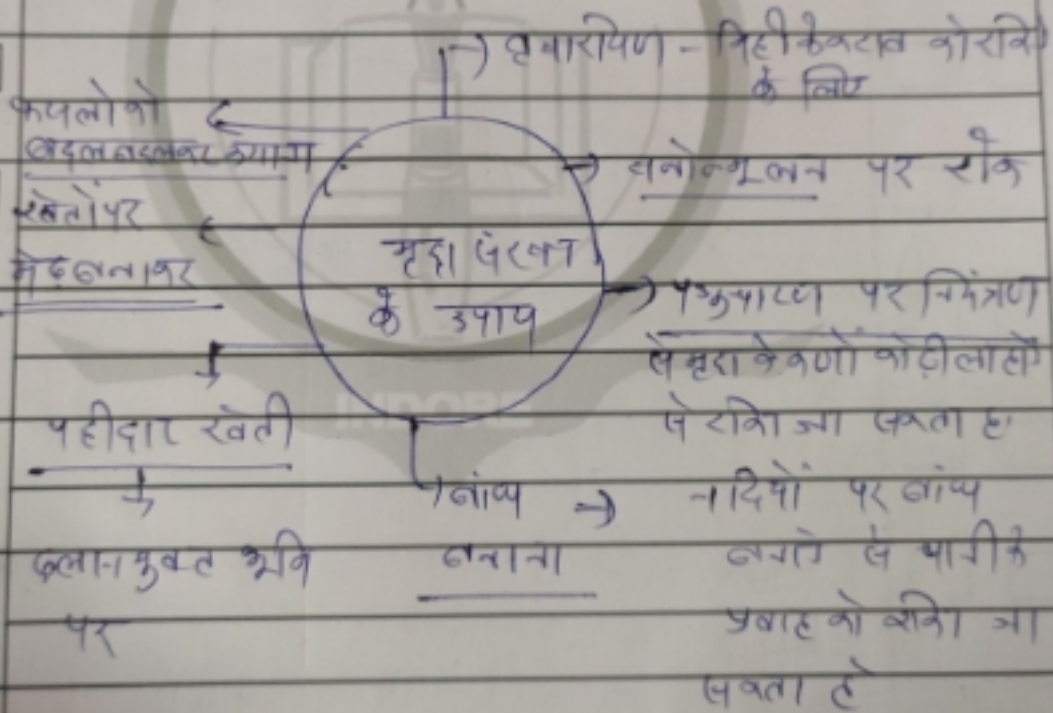 वृक्षारोपण - मिट्टी के कटाव को रोकने
के लिए
फसलों को
बदल बदलकर उगाना
वनोन्मूलन पर रोक
खेतों पर
मेढ़ बनाकर
मृदा संरक्षण
के उपाय
पशुचारण पर नियंत्रण
से मृदा के कणों को ढ़ीला होने
से रोका जा सकता है
पट्टीदार खेती
ढलान युक्त भूमि
पर
बांध
बनाना
नदियों पर बांध
बनाने से पानी के
प्रवाह को रोका जा
सकता है
INDORE